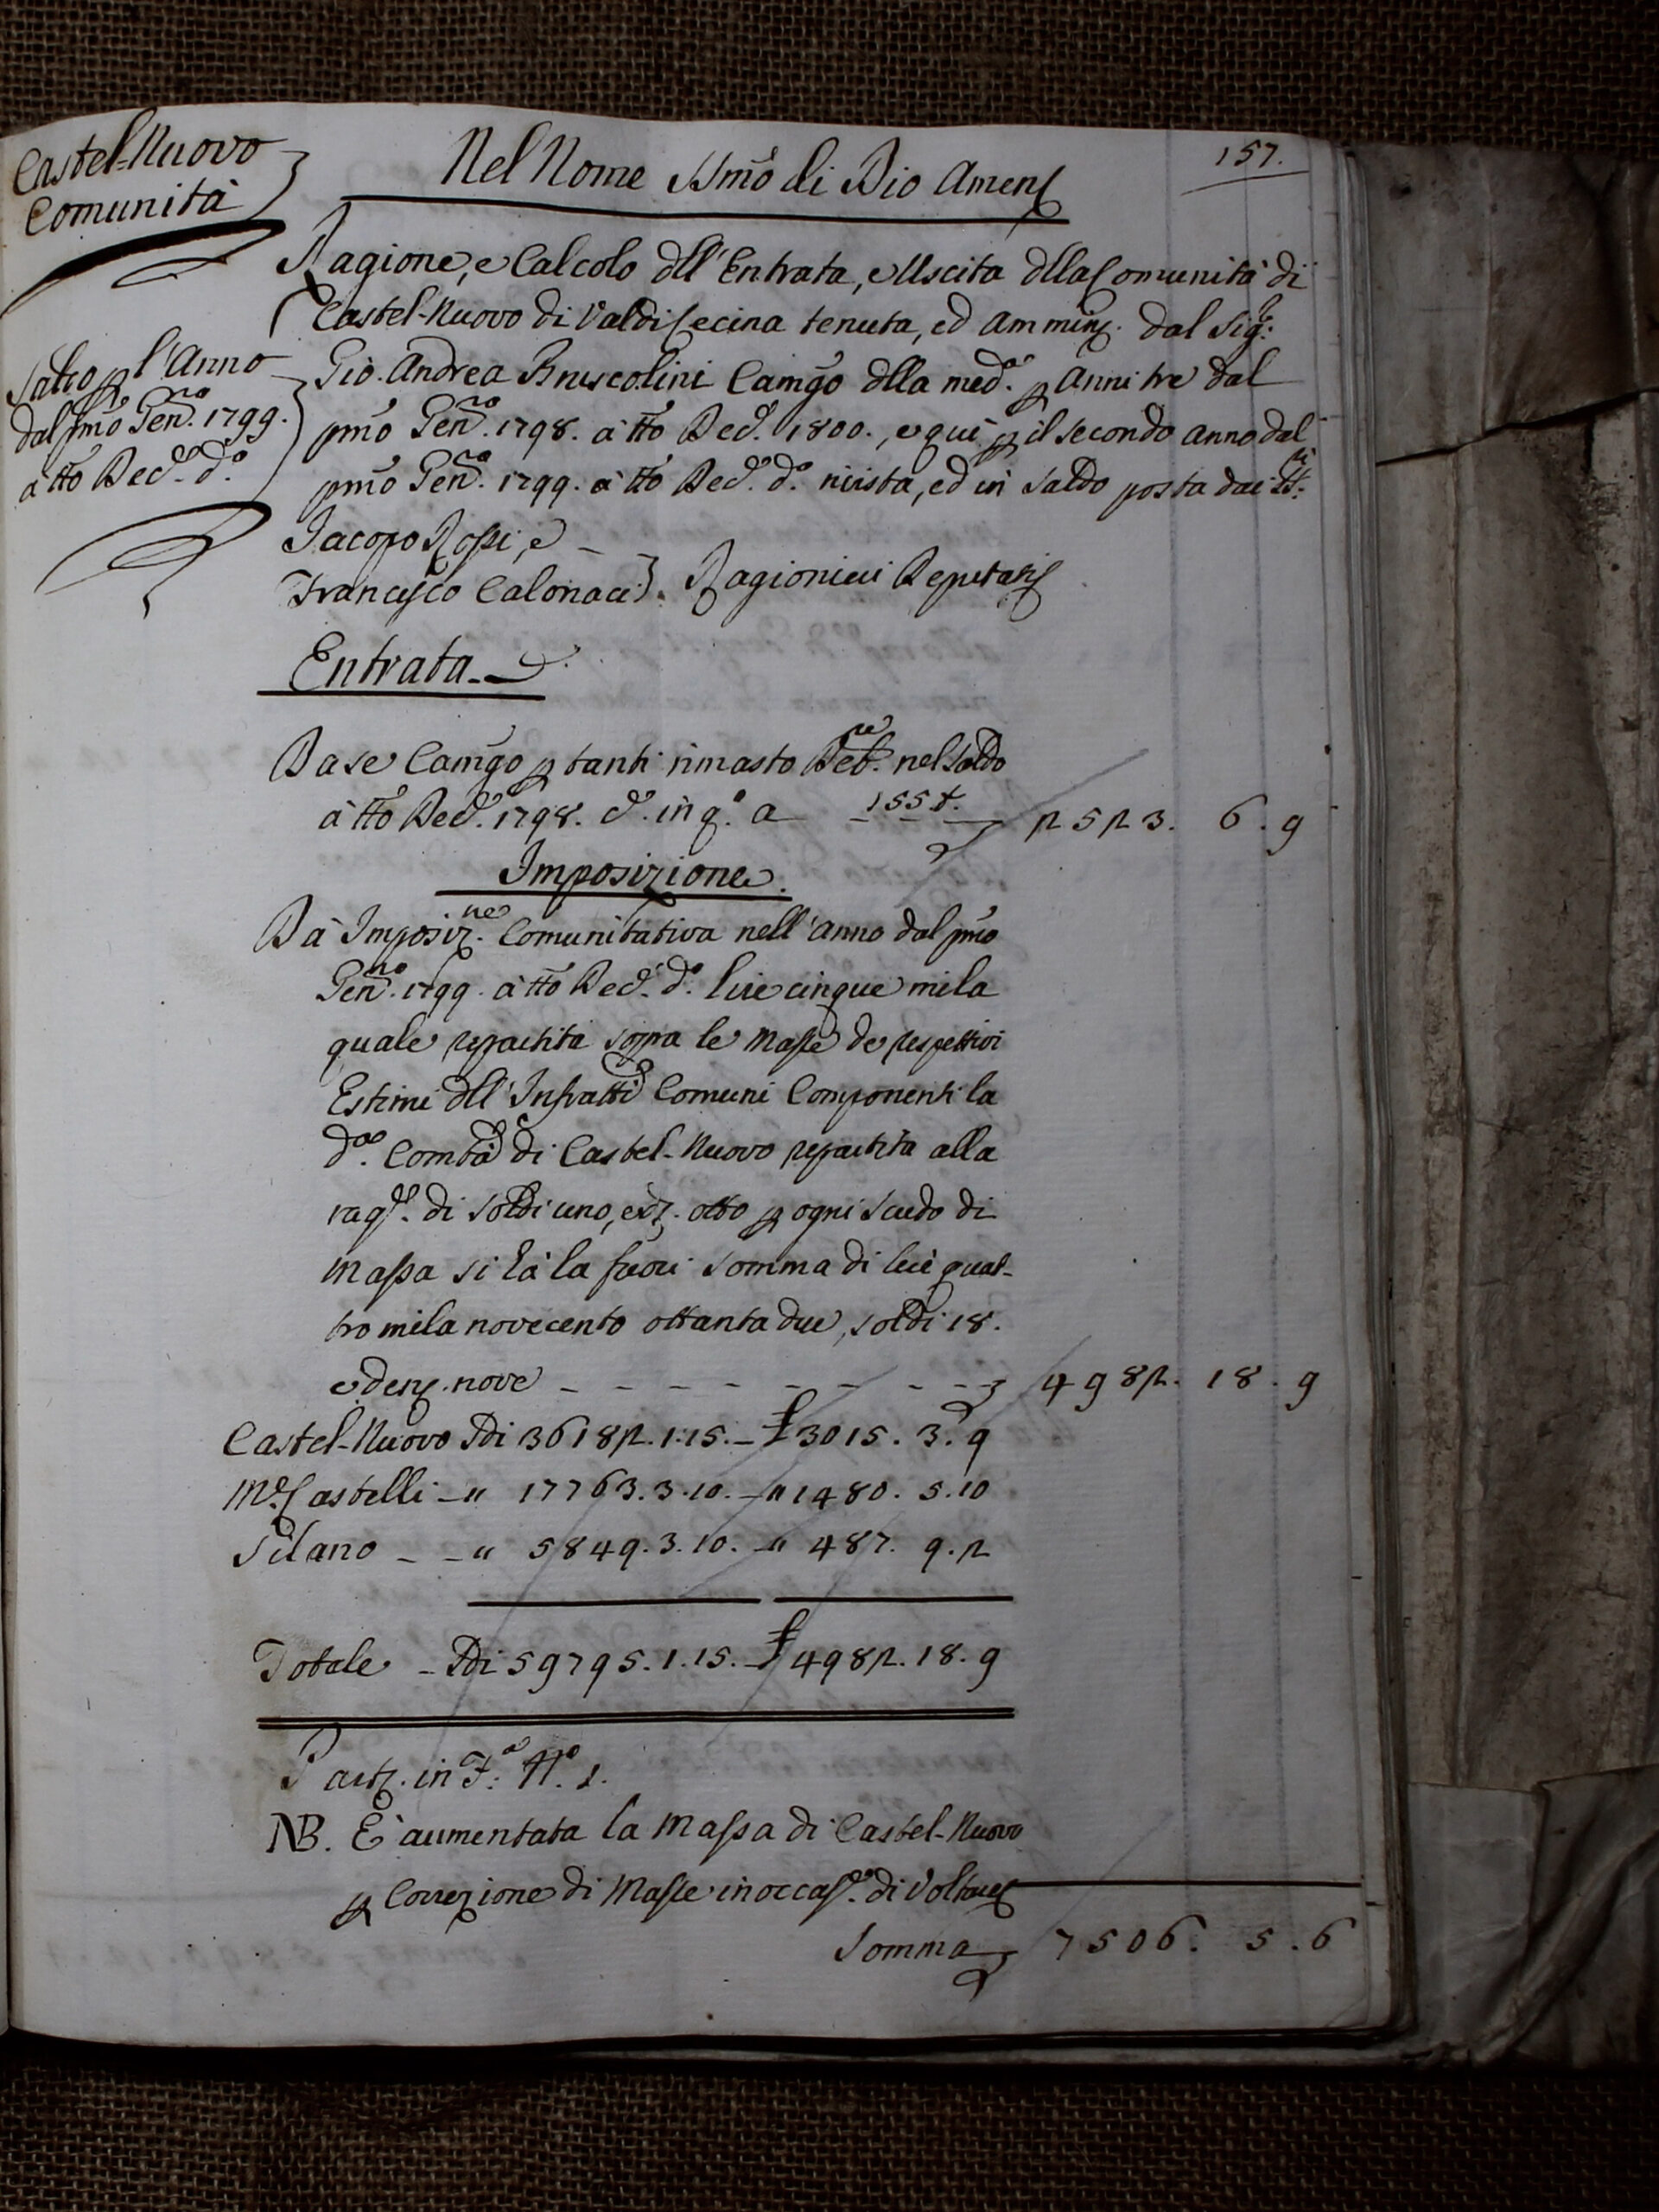 157.
Castel-Nuovo
Comunità
Nel Nome SSmo di Dio Amen
Ragione, e Calcolo dll' Entrata, e Uscita dlla Comunità di
Castel-Nuovo di Valdi Cecina tenuta, ed Ammin. dal Sig.r
Saldo p l'Anno
dal pmo Genro. 1799.
a tto Dece. do.
Gio. Andrea Bruscolini Camgo dlla meda. p Anni tre dal
pmo Genro. 1798. a tto Dece. 1800., e qui p il secondo anno dal
pmo Genro. 1799. a tto Dece. do. rivista, ed in Saldo posta dai SS.ri
Jacopo Rossi, e
Francesco Calonaci. Ragionieri Deputati
Entrata
Da se Camgo p tanti rimasto Debre. nel Saldo
a tto Dece. 1798. do. in qo. a 155 t. 2523. 6. 9
Imposizione.
Da Imposizne. Comunitativa nell' Anno dal pmo
Genno. 1799. a tto Dece. do. lire cinque mila
quale repartita sopra le Masse de respettivi
Estimi dll' Infratti Comuni Componenti la
da. Comtà di Castel-Nuovo repartita alla
ragne. di soldi uno, e d. otto p ogni Scudo di
Massa si hà la fuori Somma di lire quat-
tro mila novecento ottanta due, soldi 18.
e den. nove 4982. 18. 9
Castel-Nuovo Sdi 36182. 1. 15. £ 3015. 3. 9
Me. Castelli " 17763. 3. 10. " 1480. 5. 10
Silano " 5849. 3. 10. " 487. 9. 2
Totale Sdi 59795. 1. 15. £ 4982. 18. 9
Part. in Fa. No. 1.
NB. È aumentata la Massa di Castel-Nuovo
p Correzione di Masse in occasne. di Volture
Somma 7506. 5. 6